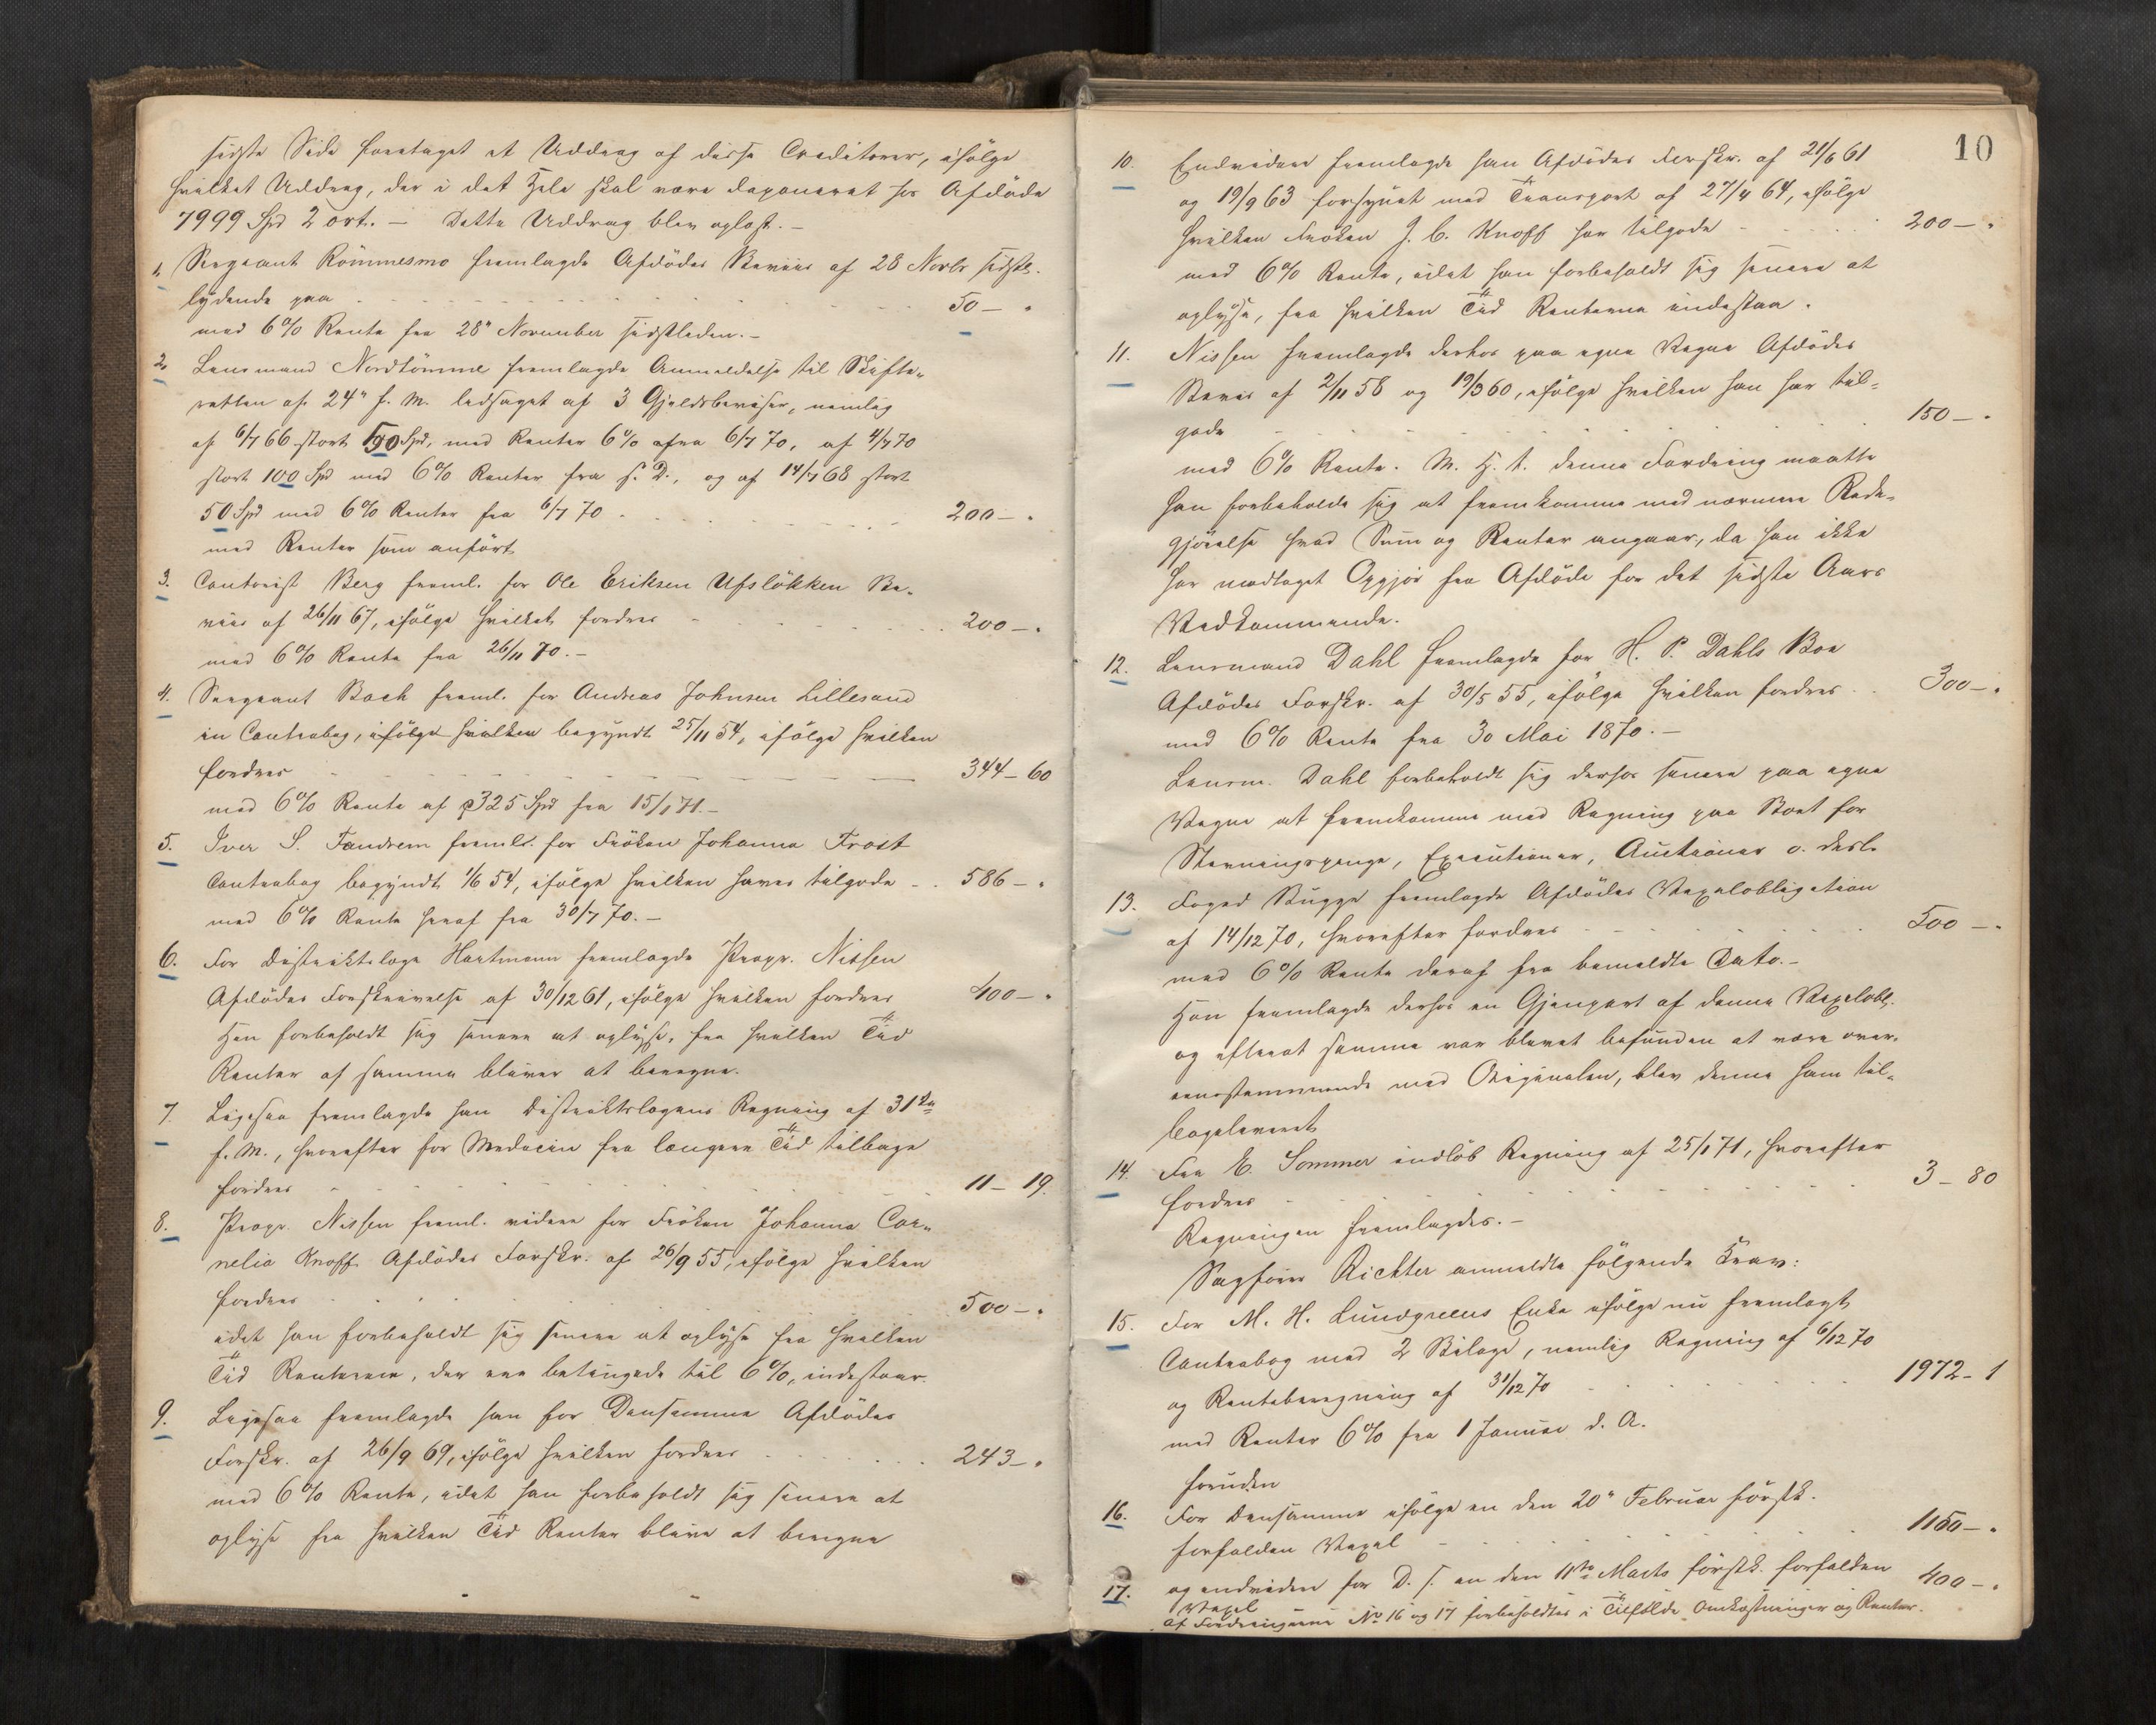 sidste Side foretaget et Uddrag af disse Creditorer, ifölge
hvilket Uddrag, der i det Hele skal være deponeret hos Afdöde
7999 Spd 2 ort. – Dette Uddrag blev oplæst. –
1. Sergeant Römmesmo fremlagde Afdödes Beviis af 28 Novbr sidstl.
lydende paa 50 – "
med 6% Rente fra 28" November sidstleden. –
2. Lensmand Nordtömme fremlagde Anmeldelse til Skifte-
retten af 24" f. M. ledsaget af 3 Gjeldsbeviser, nemlig
af 6/7 66 stort 50 Spd, med Renter 6% fra 6/7 70, af 4/7 70
stort 100 Spd med 6% Renter fra s. D., og af 14/7 68 stort
50 Spd med 6% Renter fra 6/7 70 200 – "
med Renter som anfört.
3. Contorist Berg freml. for Ole Eriksen Ufslökken Be-
viis af 26/11 67, ifölge hvilket fordres 200 – "
med 6% Rente fra 26/11 70. –
4. Sergeant Bach freml. for Andreas Johnsen Lillesand
en Contrabog, ifölge hvilken begyndt 25/11 54, ifölge hvilken
fordres 344 – 60
med 6% Rente af 325 Spd fra 15/1 71. –
5. Iver S. Fandrem freml. for Fröken Johanna Frost
Contrabog begyndt 1/6 54, ifölge hvilken haves tilgode 586 – "
med 6% Rente heraf fra 30/7 70. –
6. For Distriktslæge Hartmann fremlagde Propr. Nissen
Afdödes Forskrivelse af 30/12 61, ifölge hvilken fordres 400 – "
Han forbeholdt sig senere at oplyse, fra hvilken Tid
Renter af samme bliver at beregne.
7. Ligesaa fremlagde han Distriktslægens Regning af 31te
f. M., hvorefter for Medecin fra længere Tid tilbage
fordres 11 – 19.
8. Propr. Nissen freml. videre for Fröken Johanna Cor-
nelia Knoff Afdödes Forskr. af 26/9 55, ifölge hvilken
fordres 500 – "
idet han forbeholdt sig senere at oplyse fra hvilken
Tid Renterne, der ere betingede til 6%, indestaar.
9. Ligesaa fremlagde han for Densamme Afdödes
Forskr. af 26/9 69, ifölge hvilken fordres 243 – "
med 6% Rente, idet han forbeholdt sig senere at
oplyse fra hvilken Tid Renter blive at beregne
10
10. Endvidere fremlagde han Afdödes Forskr. af 21/6 61
og 19/9 63 forsynet med Transport af 27/4 64, ifölge
hvilken Fröken J. C. Knoff har tilgode 200 – "
med 6% Rente, idet han forbeholdt sig senere at
oplyse, fra hvilken Tid Renterne indestaa.
11. Nissen fremlagde derhos paa egne Vegne Afdödes
Bevis af 2/11 58 og 19/3 60, ifölge hvilken han har til-
gode 150 – "
med 6% Rente. M. H. t. denne Fordring maatte
han forbeholde sig at fremkomme med nærmere Rede-
gjörelse hvad Sum og Renter angaar, da han ikke
har modtaget Opgjör fra Afdöde for det sidste Aars
Vedkommende.
12. Lensmand Dahl fremlagde for H. P. Dahls Boe
Afdödes Forskr. af 30/5 55, ifölge hvilken fordres 300 – "
med 6% Rente fra 30 Mai 1870. –
Lensm. Dahl forbeholdt sig derhos senere paa egne
Vegne at fremkomme med Regning paa Boet for
Stevningspenge, Executioner, Auctioner o. desl.
13. Foged Bugge fremlagde Afdödes Vexelobligation
af 14/12 70, hvorefter fordres 500 – "
med 6% Rente deraf fra bemeldte Dato. –
Han fremlagde derhos en Gjenpart af denne Vexelobl.
og efterat samme var blevet befunden at være over-
eensstemmende med Originalen, blev denne ham til-
bageleveret
14. Fra E. Sommer indlöb Regning af 25/1 71, hvorefter
fordres 3 – 80
Regningen fremlagdes. –
Sagförer Richter anmeldte fölgende Krav:
15. For M. H. Lundgreens Enke ifölge nu fremlagt
Contrabog med 2 Bilage, nemlig Regning af 6/12 70
og Renteberegning af 31/12 70 1972 – 1
med Renter 6% fra 1 Januar d. A.
foruden
16. For Densamme ifölge en den 20" Februar förstk.
forfalden Vexel 1150 – "
17. og endvidere for D. s. en den 11te Marts förstk. forfalden 400 – "
Vexel
Af Fordringerne No 16 og 17 forbeholdtes i Tilfælde Omkostninger og Renter.